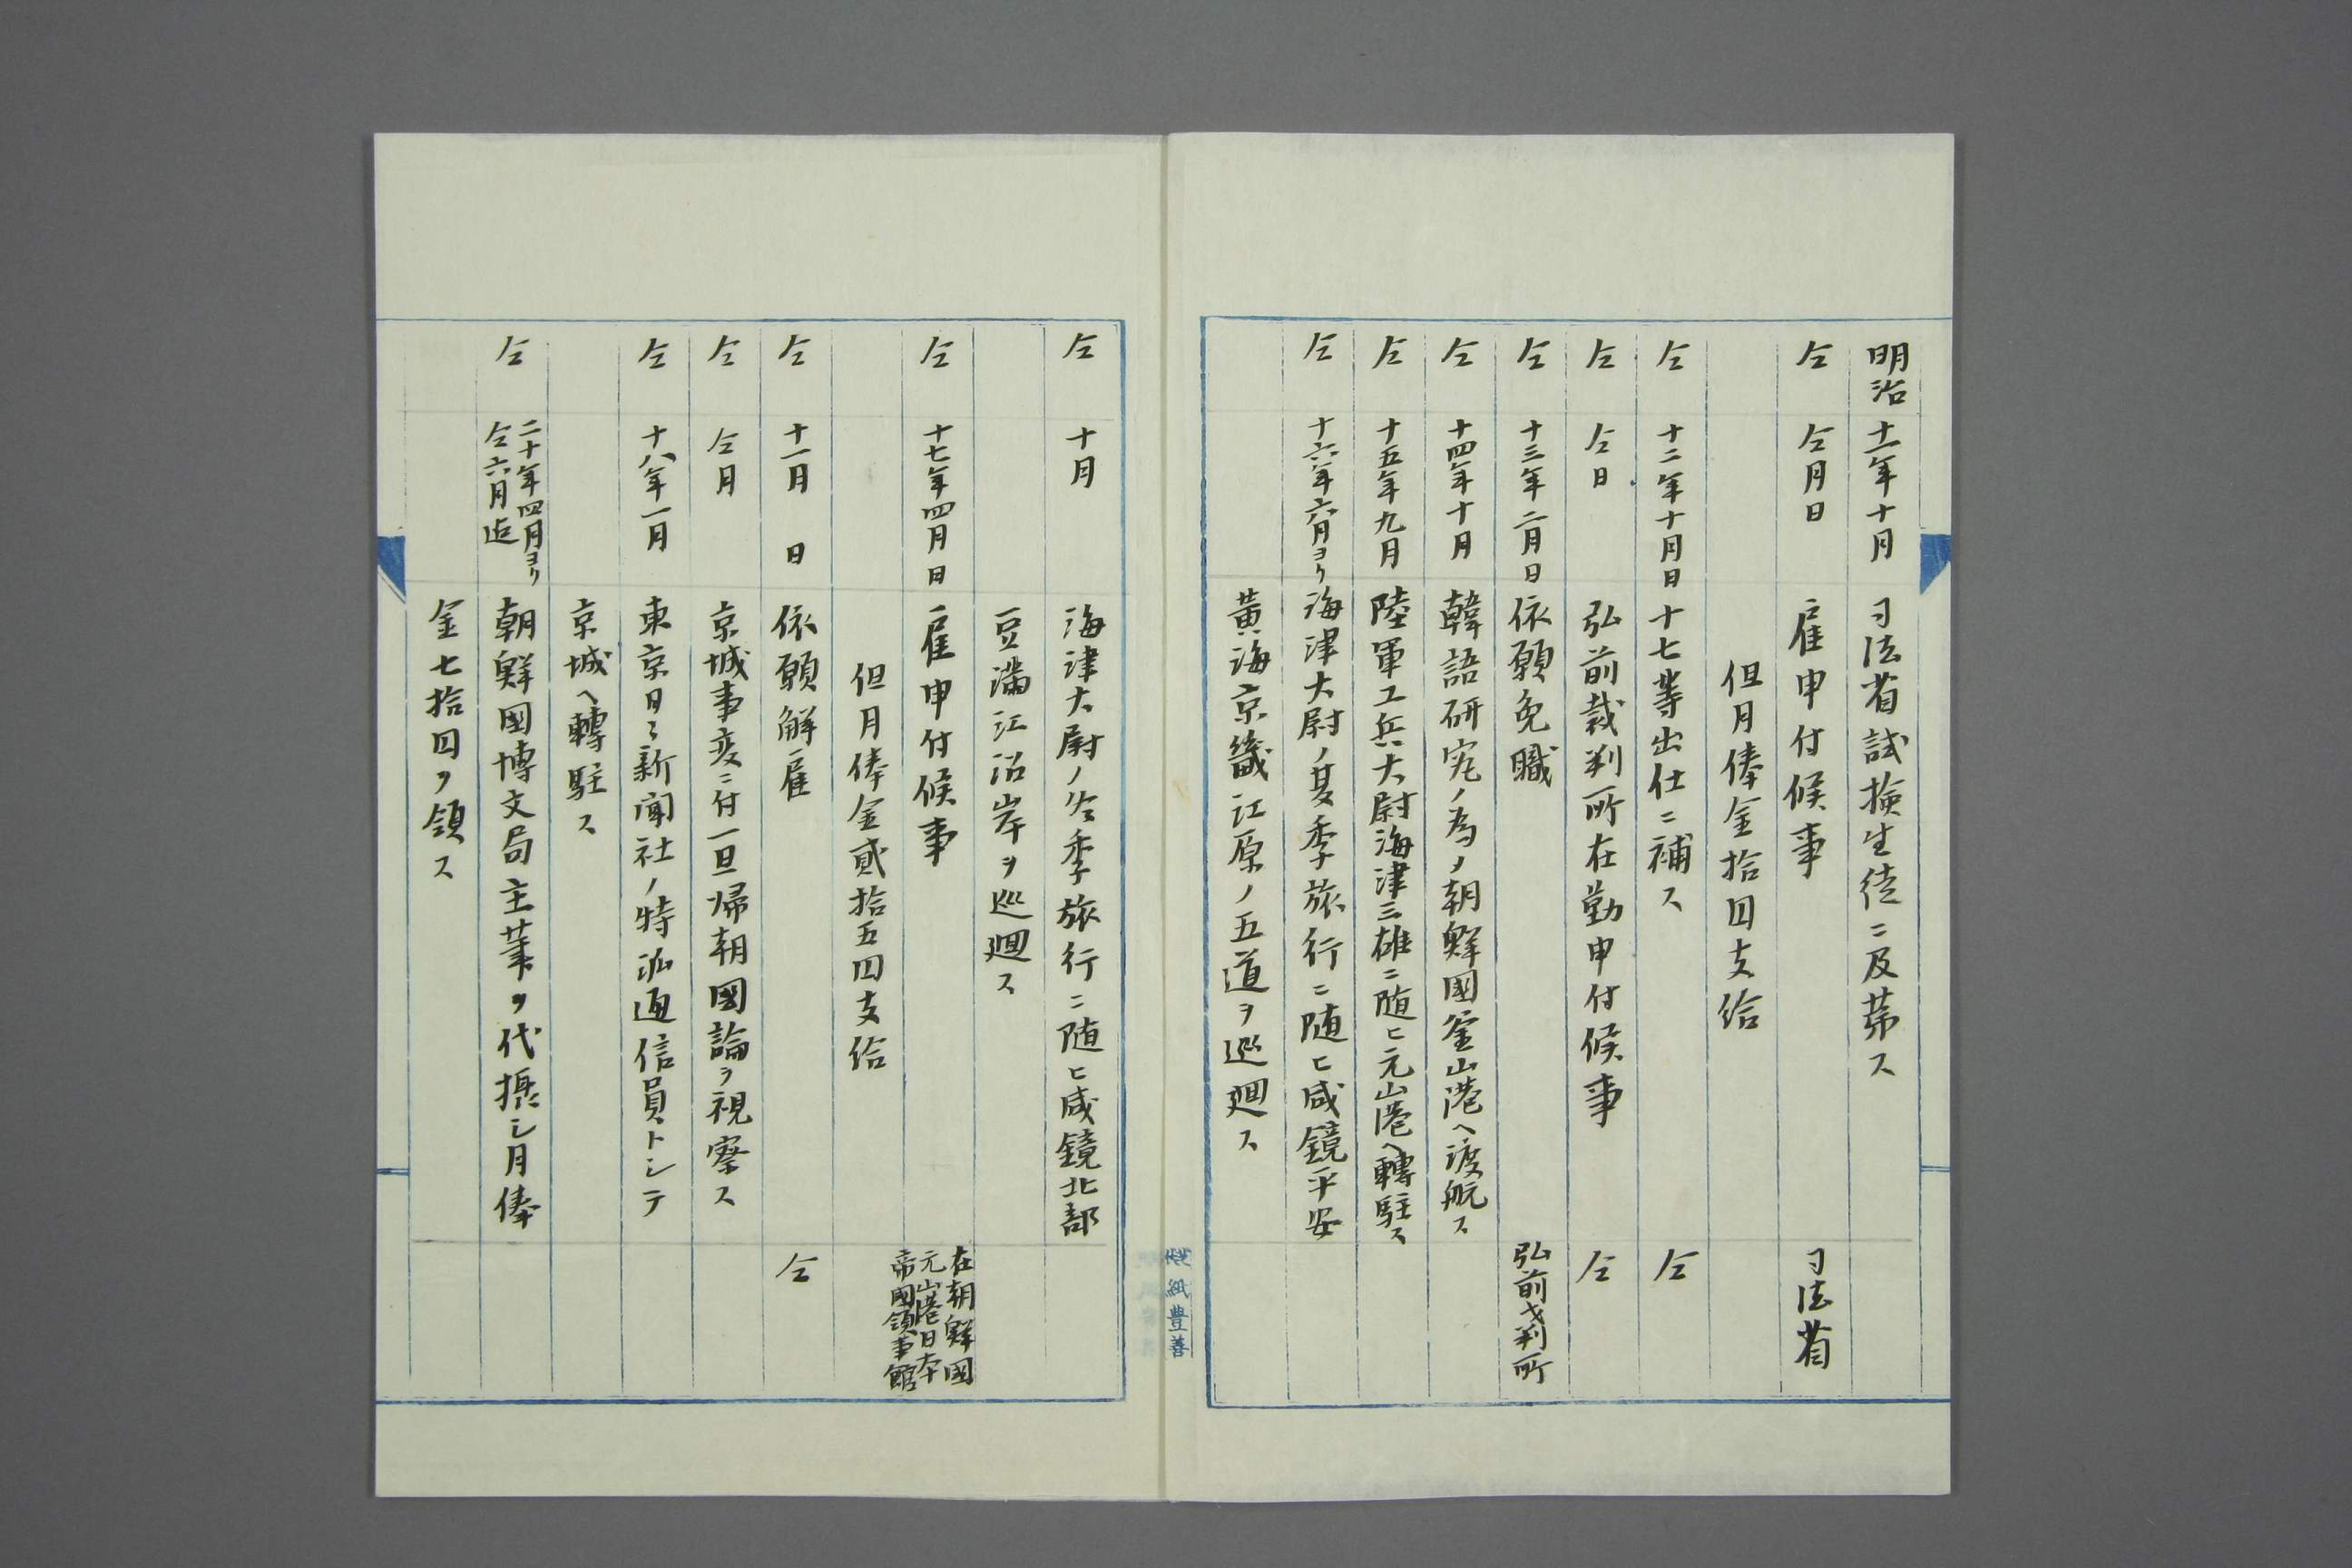 明治 十一年十月 司法省試撿生徒ニ及苐ス
仝 仝月日 雇申付候事 司法省
但月俸金拾円支給
仝 十二年十月日 十七等出仕ニ補ス 仝
仝 仝日 弘前裁判所在勤申付候事 仝
仝 十三年二月日 依願免職 弘前才判所
仝 十四年十月 韓語研究ノ為メ朝鮮國釜山港ヘ渡航ス
仝 十五年九月 陸軍工兵大尉海津三雄ニ随ヒ元山港ヘ轉駐ス
仝 十六年六月ヨリ 海津大尉ノ夏季旅行ニ随ヒ咸鏡平安
黃海京畿江原ノ五道ヲ巡廻ス
仝 十月 海津大尉ノ冬季旅行ニ随ヒ咸鏡北部
豆滿江沿岸ヲ巡廻ス
仝 十七年四月日 雇申付候事 在朝鮮國
元山港日本
帝國領事館
但月俸金貳拾五円支給
仝 十一月 日 依願解雇 仝
仝 仝月 京城事変ニ付一旦帰朝國論ヲ視察ス
仝 十八年一月 東京日々新聞社ノ特派通信員トシテ
京城ヘ轉駐ス
仝 二十年四月ヨリ
仝六月迠 朝鮮國博文局主筆ヲ代摂シ月俸
金七拾円ヲ領ス
紙豊善